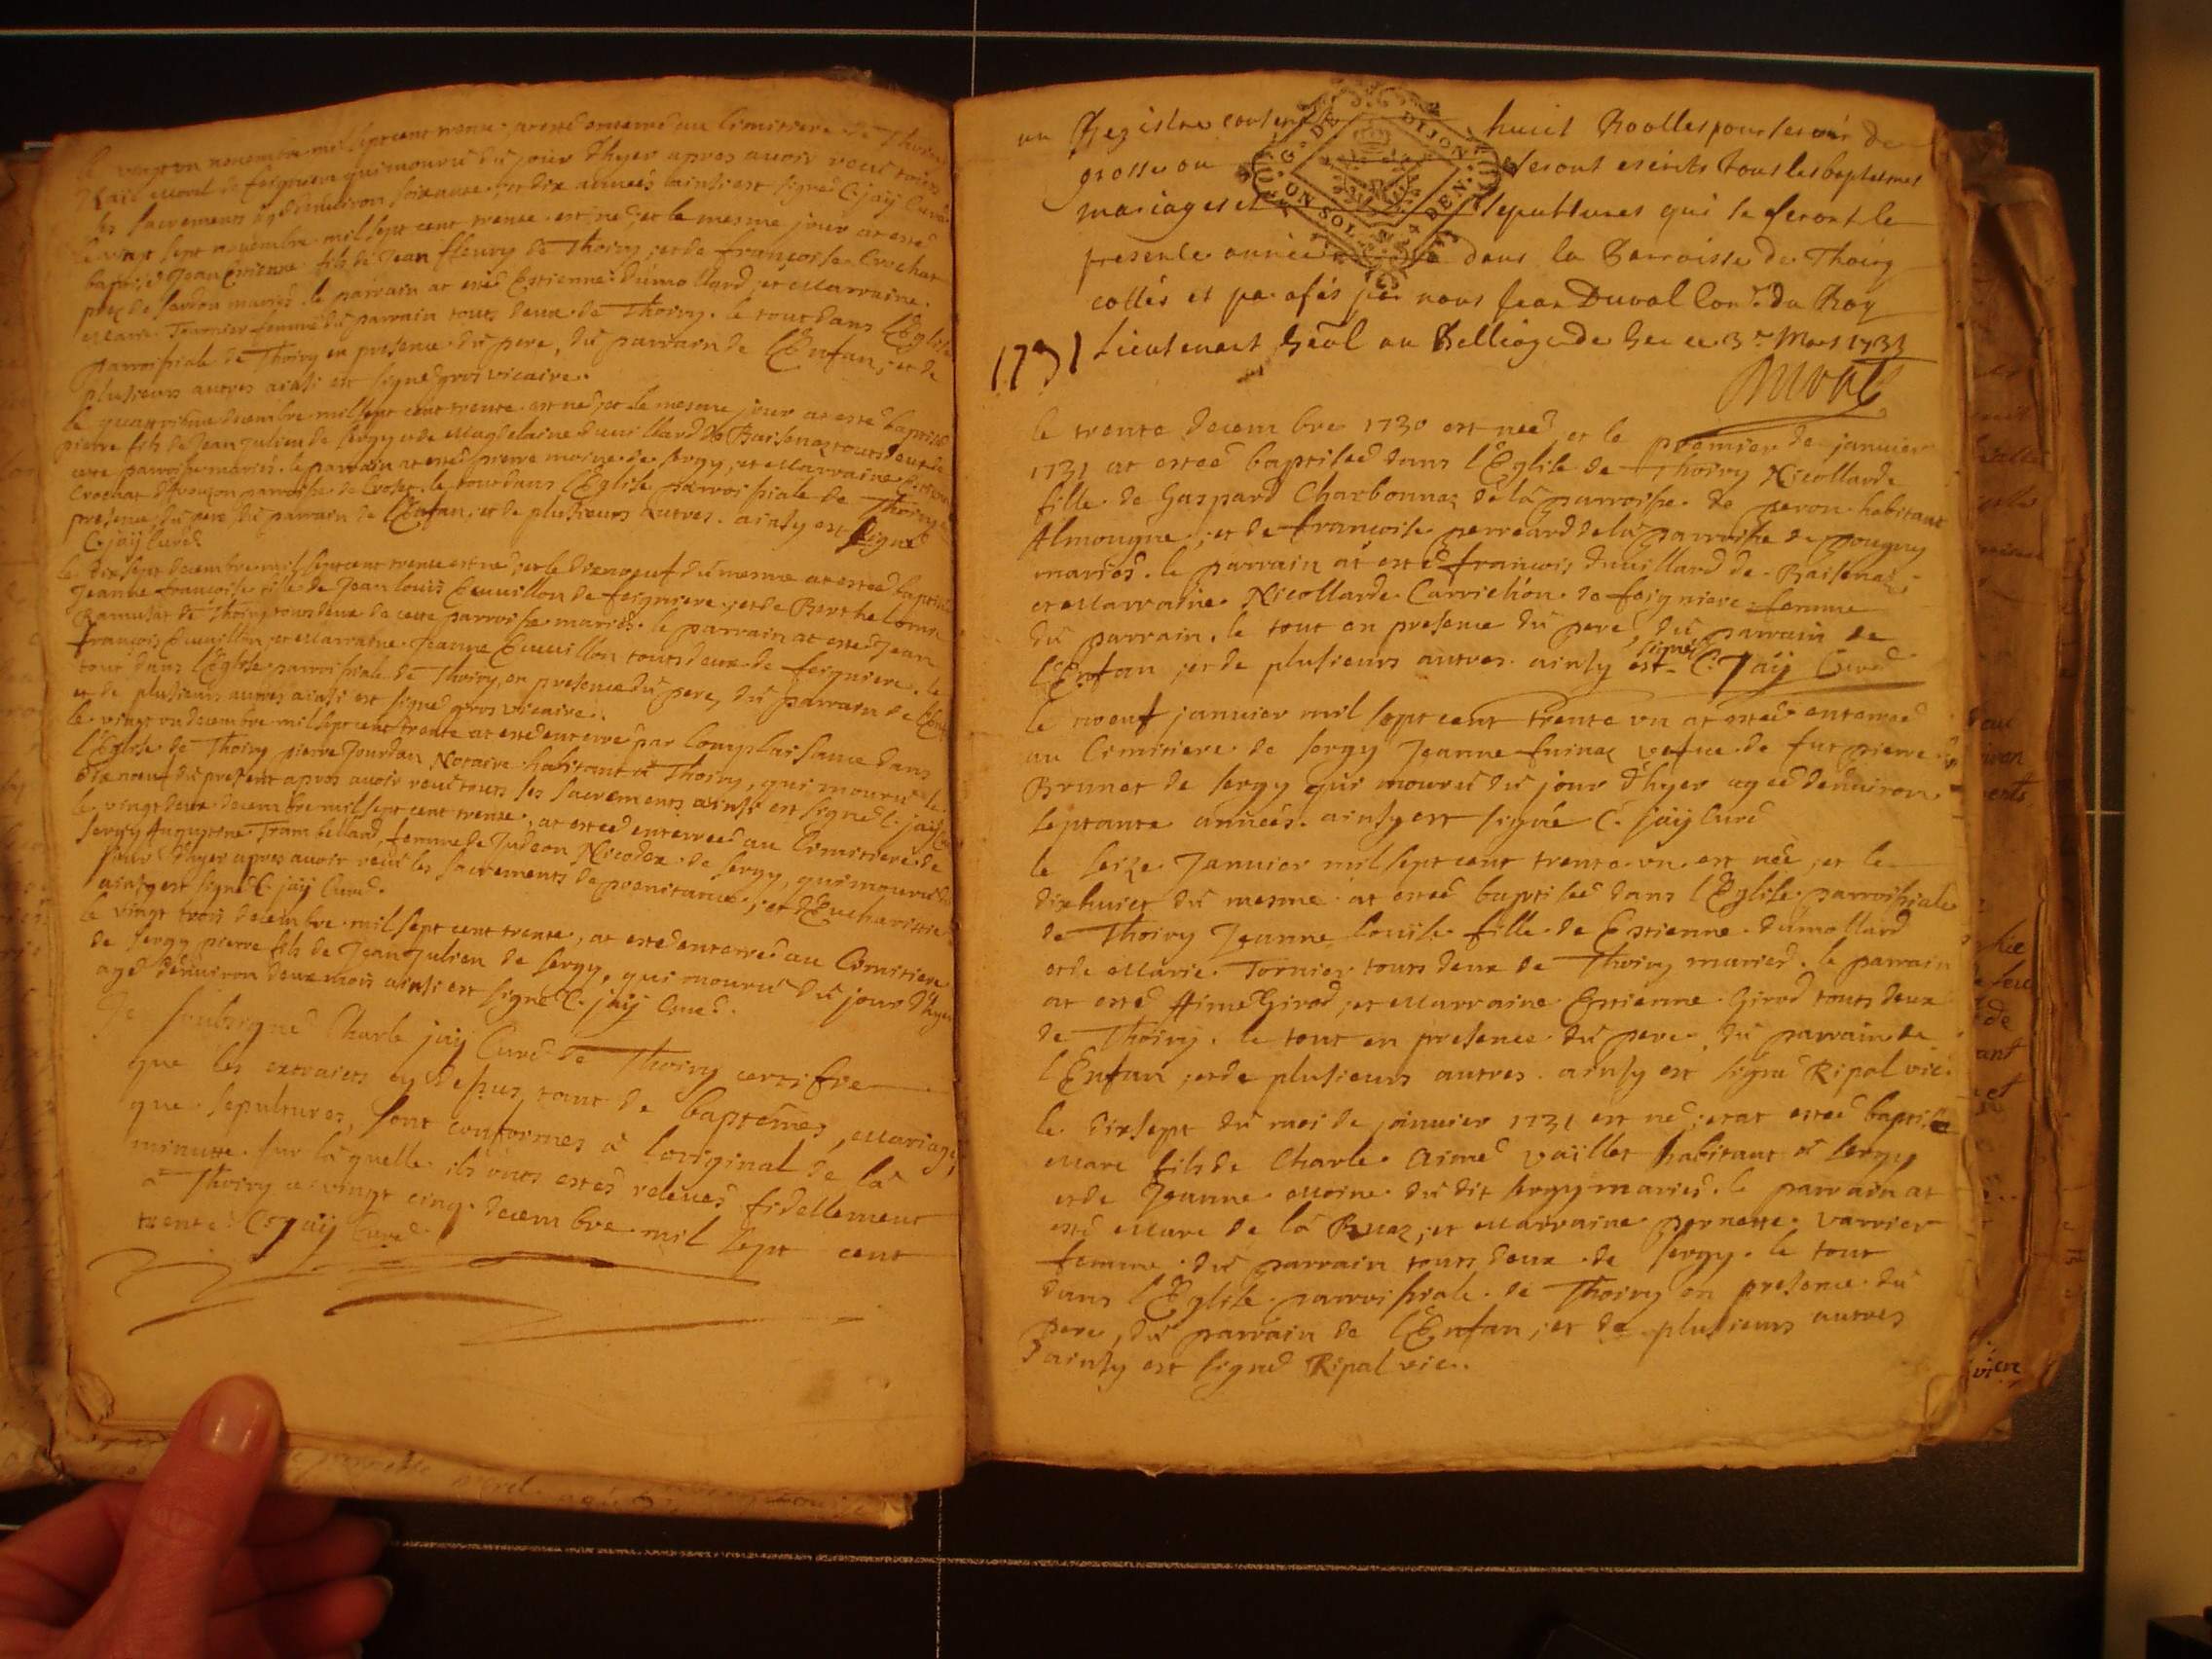 le vingt un novembre mil sept cent trente at esté enterré au Cimitiere de Thoiry
morel de feigniere qui mouru du jour d'hyer apres avoir receu touts
les sacrements agé d'environ soixante et dix années ainsi est signé C. jaÿ Curé
le vingt sept novembre mil sept cent trente est né, et le mesme jour at esté
baptisé Jean Estienne fils de Jean fleury de Thoiry, et de françoise Crochat
mariés. le parrain at esté Estienne dumollard, et Marraine
Marie Tournier femme du parrain touts deux de Thoiry. le tout dans l'Eglise
parroissiale de Thoiry en presence du pere, du parrain de l'Enfan, et de
plusieurs autres ainsi est signé gros vicaire.
le quatrieme decembre mil sept cent trente est né, et le mesme jour at esté baptisé
pierre fils de Jean Julien de sergy et de Magdelaine duvillard de Baisenas touts deux de
cette parroisse mariés. le parrain at esté pierre moine de sergy, et Marraine
Crochat d'Avouzon parroisse de Crozet. le tout dans l'Eglise parroissiale de Thoiry
presence du pere du parrain de l'Enfan, et de plusieurs autres. ainsy est signé
C. jaÿ Curé
le dix sept decembre mil sept cent trente est né, et le dix neuf du mesme at esteé baptisée
Jeanne françoise fille de Jean Louis Cuvillon de feigniere, et de Barthelomie
Ramusat de Thoiry touts deux de cette parroisse mariés. le parrain at esté Jean
françois Cuvillon, et Marraine Jeanne Cuvillon touts deux de feigniere. le
tout dans l'Eglise parroissiale de Thoiry, en presence du pere, du parrain de l'Enfan
et de plusieurs autres ainsi est signé gros vicaire.
le vingt un decembre mil sept cent trente at esté enterré par complaisance dans
l'Eglise de Thoiry pierre Jourdan Notaire habitant a Thoiry, qui mouru le
dix neuf du present apres avoir receu touts les sacrements ainsi est signé C. jaÿ Curé
le vingt deux decembre mil sept cent trente, at esteé enterreé au Cimitiere de
sergy Augustine Trambelland, femme de Judeon Nicodex de sergy, qui mouru du
jour d'hyer apres avoir receu les sacrements de penitance, et d'Eucharistie
ainsy est signé C. jaÿ Curé.
le vingt trois decembre mil sept cent trente, at esté enterré au Cimitiere
de sergy pierre fils de Jean Julien de sergy, qui mouru du jour d'hyer
agé d'environ deux mois ainsi est signé C. jaÿ Curé.
Je soubsigné Charle jaÿ Curé de Thoiry certifie
que les extraicts cy dessus, tant de baptêmes, Mariages,
que sepultures, sont conformes a l'original de la
minutte sur laquelle ils onts estés relevés fidellement
a Thoiry ce vingt cinq decembre mil sept cent
trente C. Jaÿ Curé
un Registre contenant huict Roolles pour servir de
grosse ou seront escrits tous les baptesmes
mariages et sepultures qui se feront le
presente année dans la Parroisse de Thoiry
cottés et parafés par nous Jean Duval Con.r du Roy
1731 Lieutenant Geñl au Belliage de Gex ce 3.e Mars 1731
Duval
G. DE DIJON
UN SOL 4 DEN.
le trente decembre 1730 est neé, et le premier de janvier
1731 at esteé baptiseé dans l'Eglise de Thoiry Nicollarde
fille de Gaspard Charbonnaz de la parroisse de peron habitant
Almougne, et de françoise perreard de la parroisse de pougny
mariés. le parrain at esté françois duvillard de Baisenas
et Marraine Nicollarde Carrichon de feigniere femme
du parrain. le tout en presence du pere, du parrain de
l'Enfan, et de plusieurs autres. ainsy est signé C. Jaÿ Curé
le neuf janvier mil sept cent trente un at esteé enterreé
au Cimitiere de sergy Jeanne fuinaz vefue de fut pierre
Brunet de sergy qui mouru du jour d'hyer ageé d'environ
septante années. ainsy est signé C. jaÿ Curé
le seize Janvier mil sept cent trente un est neé, et le
dix huict du mesme at esteé baptiseé dans l'Eglise parroissiale
de Thoiry Jeanne Louise fille de Estienne dumollard
et de Marie Tornier touts deux de Thoiry mariés. le parrain
at esté Aimé Girod, et Marraine Estienne Girod touts deux
de Thoiry. le tout en presence du pere, du parrain de
l'Enfan, et de plusieurs autres. ainsy est signé Ripal vic.
le dixsept du moi de janvier 1731 est né, et at esteé baptisé
Marc fils de Charle Aimé vaillet habitant a sergy
et de Jeanne Moine du dit sergy mariés. le parrain at
esté Marc de la Ruaz, et Marraine pernette Varrier
femme du parrain touts deux de sergy. le tout
dans l'Eglise parroissiale de Thoiry en presence du
pere, du parrain de l'Enfan, et de plusieurs autres
ainsy est signé Ripal vic.